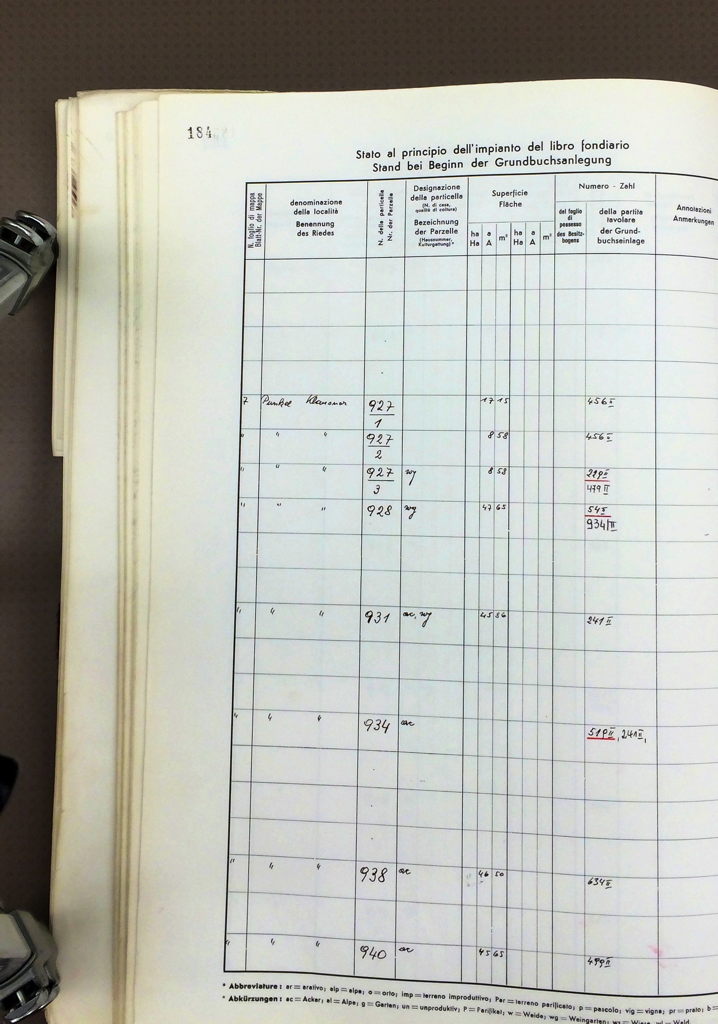 184
Stato al principio dell'impianto del libro fondiario
Stand bei Beginn der Grundbuchsanlegung
N. foglio di mappa
Blatt-Nr. der Mappe
denominazione
della località
Benennung
des Riedes
N. della particella
Nr. der Parzelle
Designazione
della particella
(N. di casa,
qualità di coltura)
Bezeichnung
der Parzelle
(Hausnummer,
Kulturgattung)*
Superficie
Fläche
ha a m² ha a m²
Ha A Ha A
Numero - Zahl
del foglio
di
possesso
des Besitz-
bogens
della partita
tavolare
der Grund-
buchseinlage
Annotazioni
Anmerkungen
7 927/1 17 15 456 II
" " " 927/2 8 58 456 II
" " " 927/3 wg 8 58
479 II
" " " 928 wg 47 65 54 II
934/II
" " " 931 ac, wg 45 86 241 II
" " " 934 ac 519 II, 241 II,
" " " 938 ac 46 50 634 II
" " " 940 ac 45 65 499 II
* Abbreviature: ar = arativo; alp = alpe; o = orto; imp = terreno improduttivo; Par = terreno parificato; p = pascolo; vig = vigna; pr = prato; b =
* Abkürzungen: ac = Acker; al = Alpe; g = Garten; un = unproduktiv; P = Parifikat; w = Weide; wg = Weingarten;